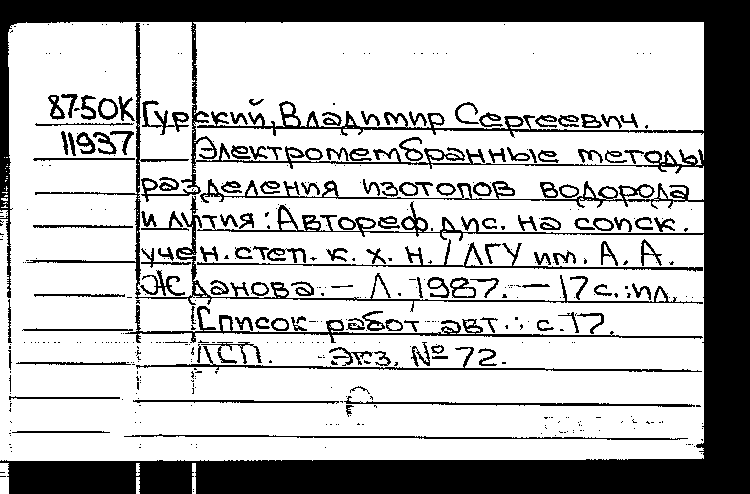 87-50К Гурский, Владимир Сергеевич.
11937 Электромембранные методы
разделения изотопов водорода
и лития : Автореф. дис. на соиск.
учен. степ. к. х. н. / ЛГУ им. А. А.
Жданова. — Л., 1987. — 17 с. : ил.
Список работ авт. : с. 17.
ДСП. Экз. № 72.